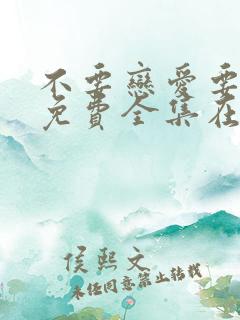 不要戀愛要
免費全集在
侯熙文
未经同意禁止转载